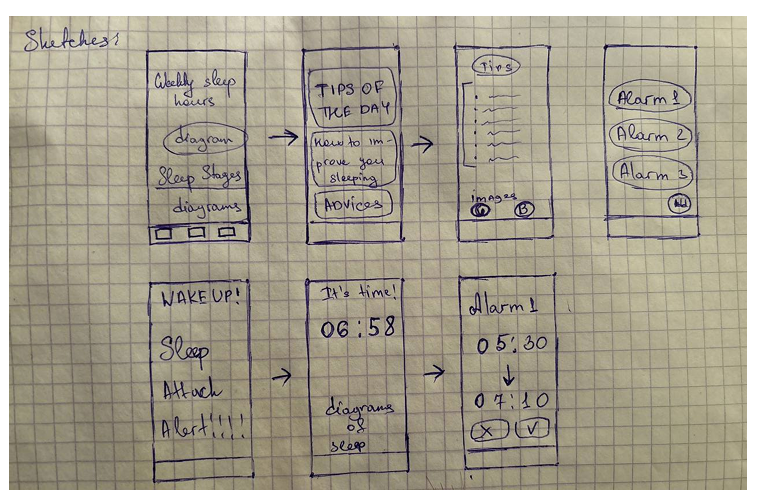 Sketches:
Weekly sleep
hours
diagram
Sleep Stages
diagrams
TIPS OF
THE DAY
How to im-
prove you
sleeping
ADVICES
Tips
images
B
Alarm 1
Alarm 2
Alarm 3
WAKE UP!
Sleep
Attack
Alert!!!!
It's time!
06:58
diagrams
of
sleep
Alarm 1
05:30
07:10
X V